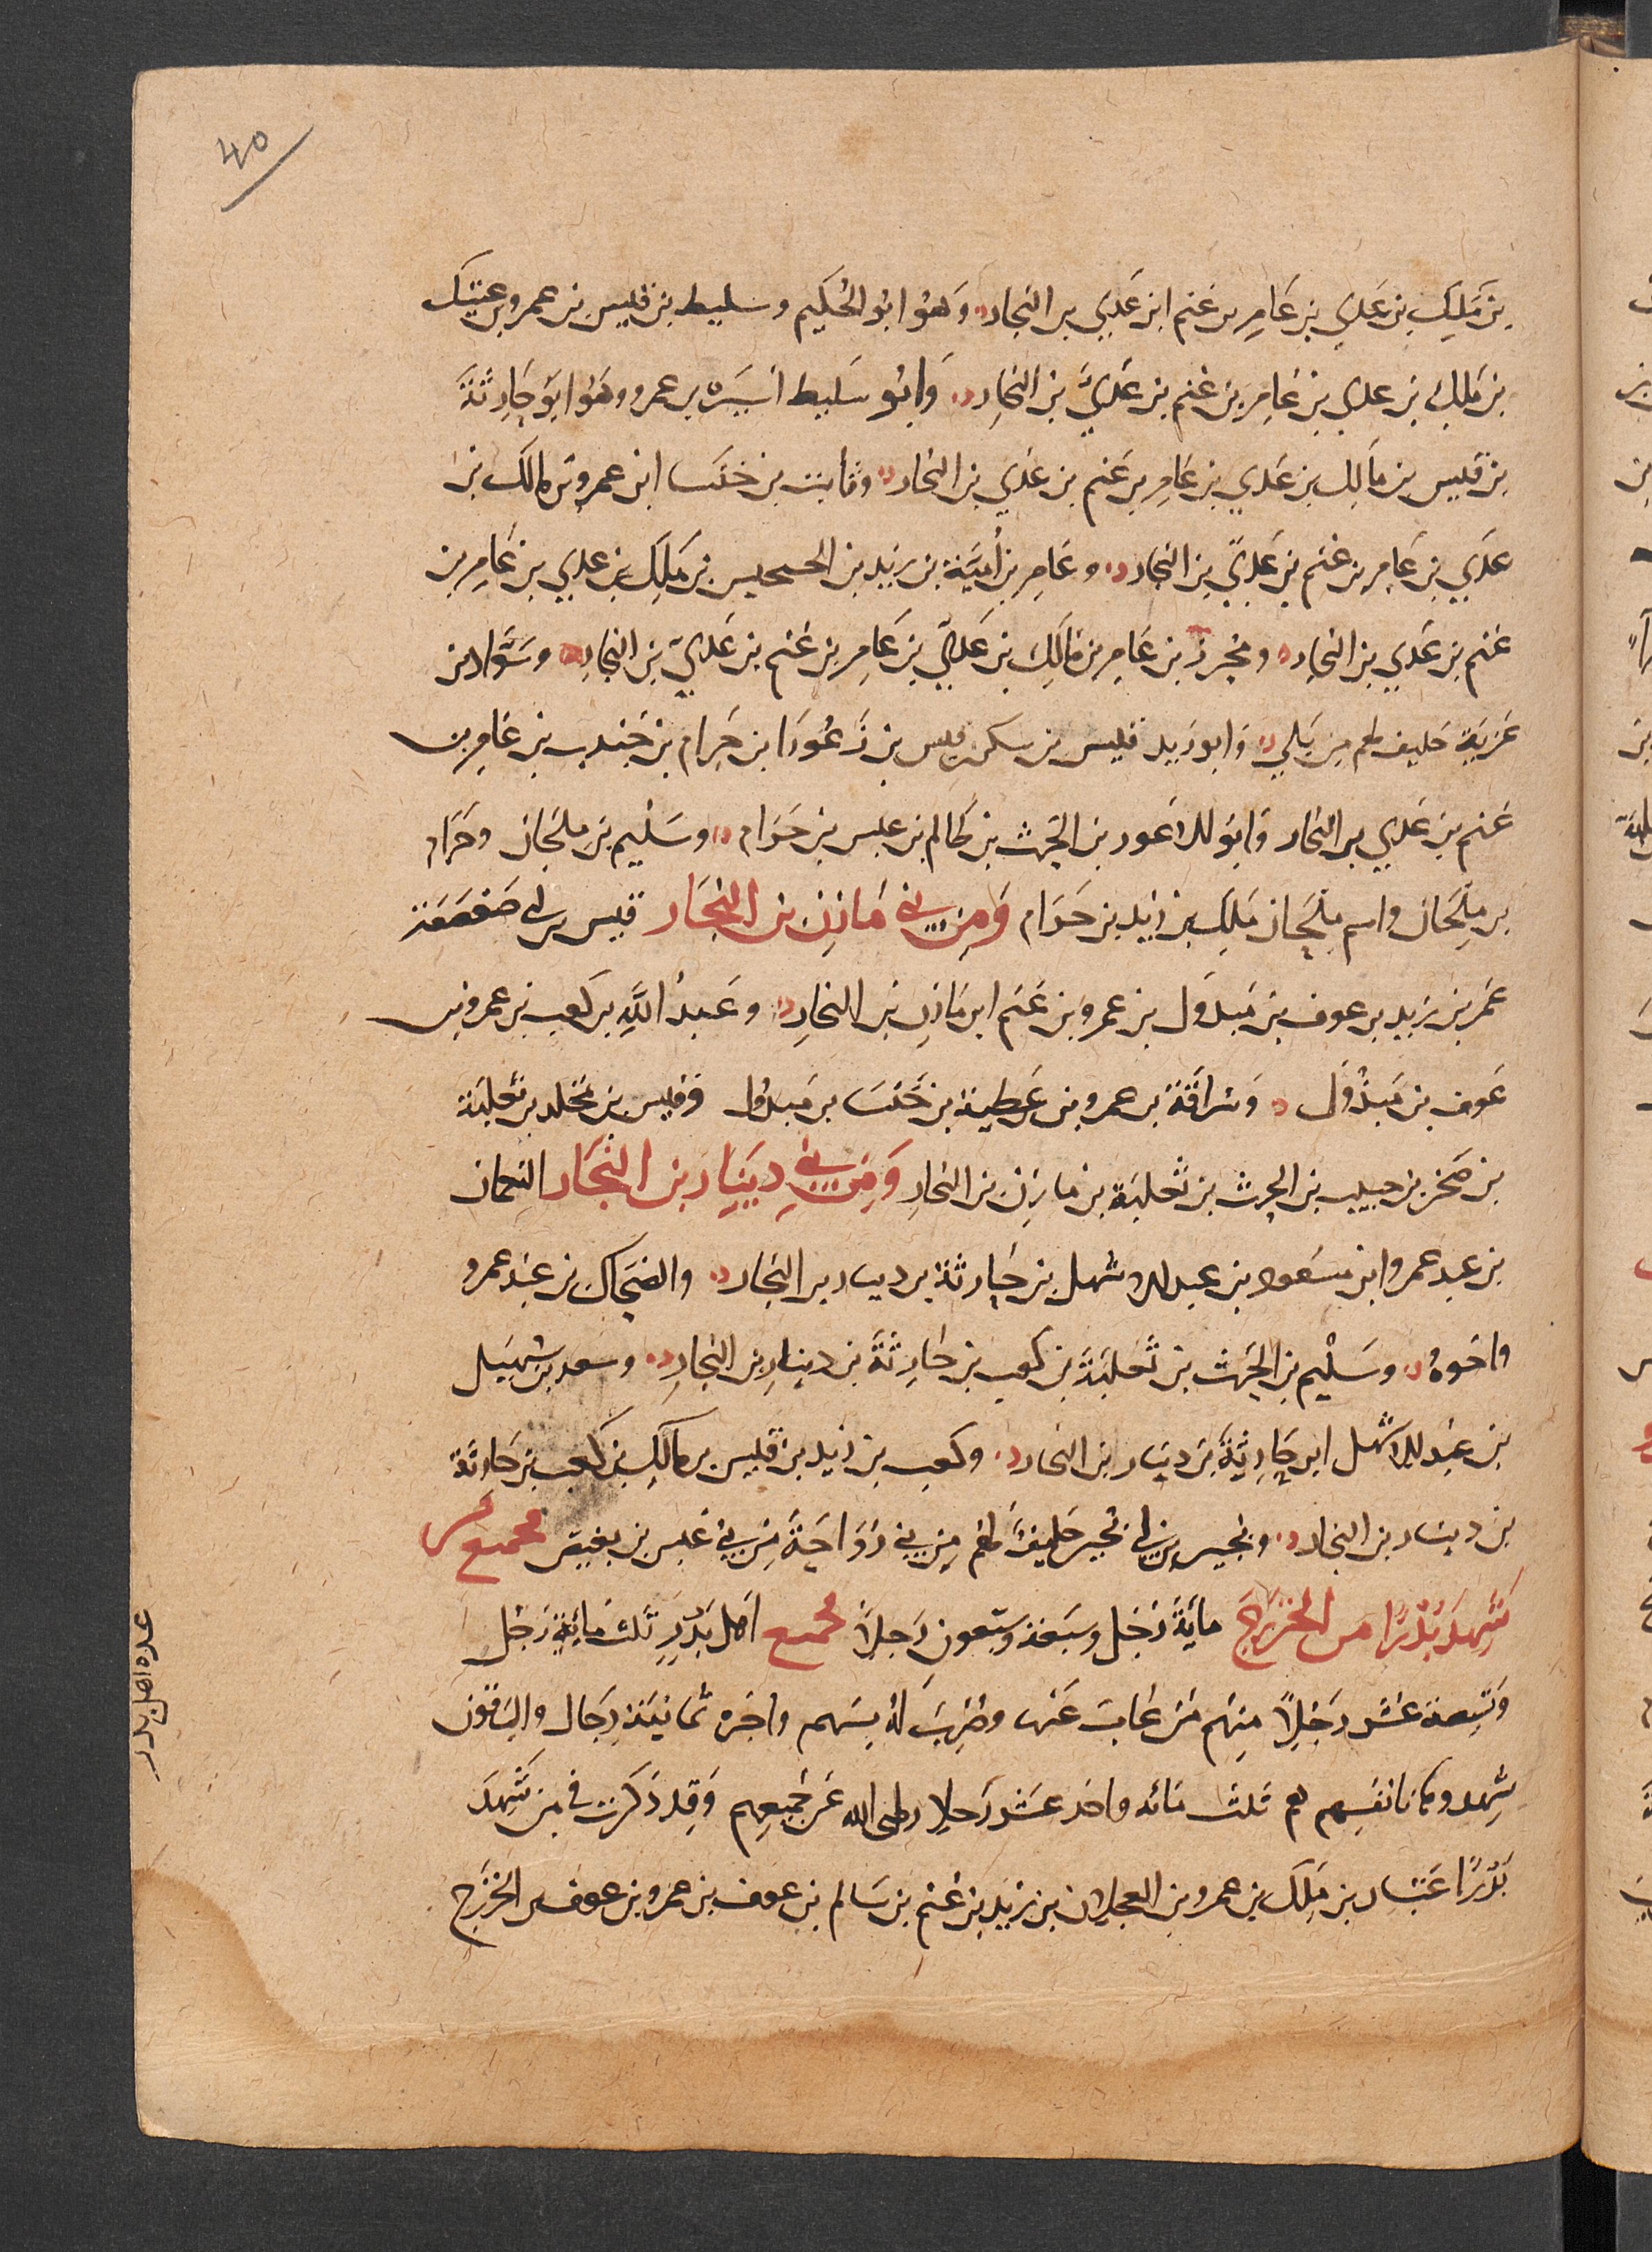 40
بن مَلِكِ بن عَدِي بن عَامِرِ بن غنم ابن عَدِي بن النجار وَهُوَ ابُو الحُكَيم وسليط بن قيس بن عمرو بن عتيك
بن مَلِك بن عدي بن عَامِر بن غنم بن عَدِيّ بن النجارِ وَابُو سَليط اُسَيره بن عمرو وهُوَ ابو خَارِثَةَ
بن قيس بن مَالِك بن عَدي بن عَامِر بن غنم بن عَدي بن النجار وثابت بن خنسا ابن عمرو بن مالك بن
عدي بن عَامِر بن غنم بن عَدِيّ بن النجار وعَامِر بن أُمَيَّة بن زيد بن الحسحاس بن مَلِك بن عدي بن عَامِر بن
غنم بن عَدي بن النجار ومُحرز بن عَامِر بن مَالِكِ بن عَدِيّ بن عَامِر بن غنم بن عَدِيّ بن النجارِ وسَوَّاد بن
غزية حليف لهم من بَلي وَابو زيد قيس بن سكن قيس بن زَعُورَا بن حَرام بن جُندب بن عَامِر بن
غنم بن عَدي بن النجار وَابو الاعور بن الحَرث بن ظالم بن عبس بن حَرَام وسُلَيم بن مِلحَان وحَرَام
بن مِلحَان واسم مِلحَان مَلِك بن زَيد بن حَرَام وَمِن بني مَازِن بن النجَار قيس بن ابي صَعصَعَة
عَمر بن زيد بن عوف بن مَبذول بن عمرو بن غنم ابن مَازِن بن النجارِ وعَبدُ اللَّهِ بن كعب بن عمرو بن
عَوف بن مَبذُول وَسُرَاقَة بن عمرو بن عَطية بن خَنسَا بن مَبذول وقيس بن مخلد بن ثَعلبَة
بن صَخر بن حبيب بن الحرث بن ثَعلبَة بن مازن بن النجارِ وَمِن بَني دِينَارِ بن النجَار النعمان
بن عبد عمرو ابن مسعود بن عبد الاشهل بن حَارثة بن دينار بن النجار والضحاك بن عبد عمرو
واخوهُ وسُلَيم بن الحَرث بن ثَعلبَة بن كعب بن حَارِثَةَ بن دينارِ بن النجارِ وسعد بن سُهيل
بن عبد الاشهل ابن حَارِثَةَ بن دينار بن النجار وكعب بن زيد بن قيس بن مالك بن كعب بن حَارثَة
بن دينار بن النجار وبُجير بن ابي بُجير حَليفٌ لهم مِن بني رَوَاحَةَ مِن بني عَبس بن بغيض فجميع من
شَهِدَ بَدْرًا من الخزرَج مايَةَ رَجُل وسَبعَة وسَبعون رَجلًا فجميع اَهل بَدرٍ ثلث مايَةِ رَجُل
وتسعة عَشر رَجُلًا مِنهم مَن غابَ عَنها وضُربَ لَهُ بسَهم واجره ثمانيَة رِجال والباقون
شهدوها بانفسهم هم ثلث مائه واحد عَشَر رَجلا رضى الله عَن جميعِهم وَقد ذكرت في من شَهِدَ
بَدْرًا عَتبان بن مَلِك بن عمرو بن العجلان بن زيد بن غنم بن سَالم بن عوف بن عمرو بن عوف بن الخزرج
عده اهل بدر